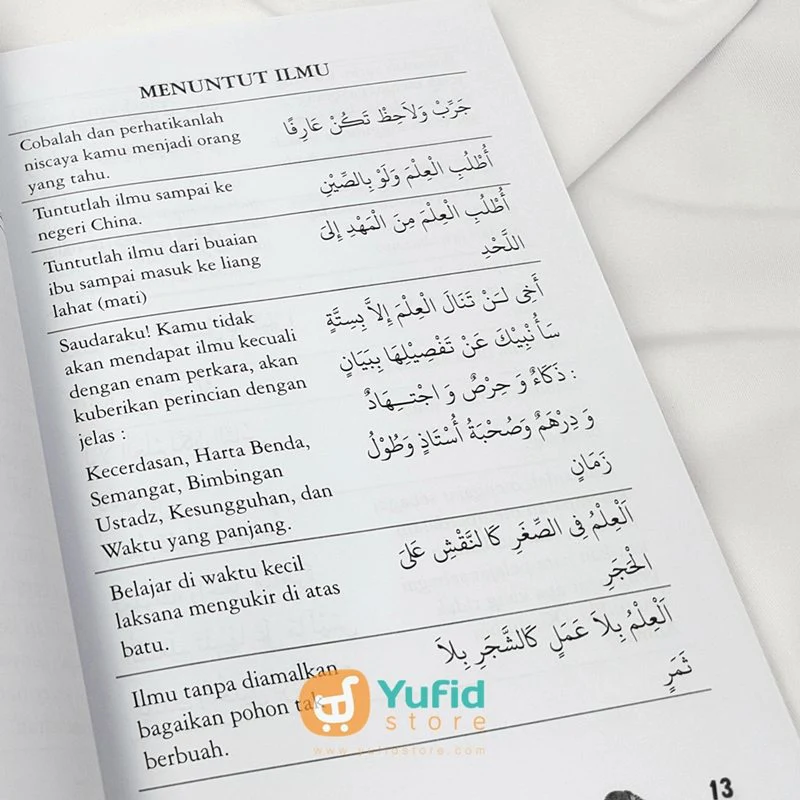 MENUNTUT ILMU
Cobalah dan perhatikanlah
niscaya kamu menjadi orang
yang tahu.
جَرِّبْ وَلاَحِظْ تَكُنْ عَارِفًا
Tuntutlah ilmu sampai ke
negeri China.
أُطْلُبِ الْعِلْمَ وَلَوْ بِالصِّيْنِ
Tuntutlah ilmu dari buaian
ibu sampai masuk ke liang
lahat (mati)
أُطْلُبِ الْعِلْمَ مِنَ الْمَهْدِ إِلىَ
اللَّحْدِ
Saudaraku! Kamu tidak
akan mendapat ilmu kecuali
dengan enam perkara, akan
kuberikan perincian dengan
jelas :
Kecerdasan, Harta Benda,
Semangat, Bimbingan
Ustadz, Kesungguhan, dan
Waktu yang panjang.
أَخِى لَنْ تَنَالَ الْعِلْمَ إِلاَّ بِسِتَّةٍ
سَأُنْبِيْكَ عَنْ تَفْصِيْلِهَا بِبَيَانٍ
: ذَكَاءٌ وَ حِرْصٌ وَ اجْتِـهَادٌ
وَ دِرْهَمٌ وَصُحْبَةُ أُسْتَاذٍ وَطُوْلُ
زَمَانٍ
Belajar di waktu kecil
laksana mengukir di atas
batu.
اَلْعِلْمُ فِى الصِّغَرِ كَالنَّقْشِ عَلىَ
الْحَجَرِ
Ilmu tanpa diamalkan
bagaikan pohon tak
berbuah.
اَلْعِلْمُ بِلاَ عَمَلٍ كَالشَّجَرِ بِلاَ
ثَمَرٍ
Yufid
store
www.yufidstore.com
13